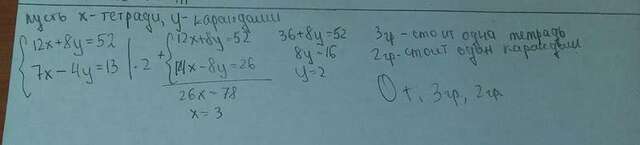 пусть х-тетради, у-карандаши
12x+8y=52
7x-4y=13 | ·2
+
12x+8y=52
14x-8y=26
26x=78
x=3
36+8y=52
8y=16
y=2
3гр-стоит одна тетрадь
2гр-стоит один карандаш
От. 3гр, 2гр